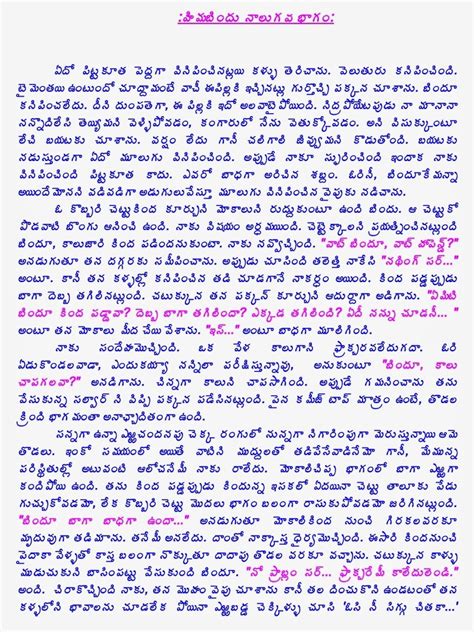 :హిమబిందు నాలుగవ భాగం:
ఏదో పిట్టకూత పెద్దగా వినిపించినట్లయి కళ్ళు తెరిచాను. వెలుతురు కనిపించింది.
టైమెంతయి ఉంటుందో చూద్దామంటే వాచీ ఈపిల్లకి ఇచ్చినట్లు గుర్తొచ్చి పక్కన చూశాను. బిందూ
కనిపించలేదు. దీని దుంపతెగా, ఈ పిల్లకి ఇదో అలవాటైపోయింది. నిద్రపోయేటపుడు నా మానానా
నన్నొదిలేసి తెయ్యమని వెళ్ళిపోవడం, కంగారులో నేను వెతుక్కోవడం. అని విసుక్కుంటూ
లేచి బయటకు చూశాను. వర్షం లేదు గానీ చలిగాలి జివ్వుమని కొడుతోంది. బయటకు
నడుస్తుండగా ఏదో మూలుగు వినిపించింది. అప్పుడే నాకూ స్ఫురించింది ఇందాక నాకు
వినిపించింది పిట్టకూత కాదు. ఎవరో బాధగా అరిచిన శబ్దం. ఓరినీ, బిందూకేమన్నా
అయిందేమోనని వడివడిగా అడుగులువేస్తూ మూలుగు వినిపించిన వైపుకు నడిచాను.
ఓ కొబ్బరి చెట్టుకింద కూర్చుని మోకాలుని రుద్దుకుంటూ ఉంది బిందు. ఆ చెట్టుకో
పొడవాటి బొంగు ఆనించి ఉంది. నాకు విషయం అర్ధమయ్యింది. చెట్టెక్కాలని ప్రయత్నించినట్లుంది
బిందూ, కాలుజారి కింద పడిందనుకుంటా. నాకు నవ్వొచ్చింది. "వాట్ బిందూ, వాట్ హాపెన్డ్?"
అడుగుతూ తన దగ్గరకు సమీపించాను. అప్పుడు చూసింది తలెత్తి నాకేసి "నథింగ్ సర్..."
అంటూ. కానీ తన కళ్ళల్లో కనిపించిన తడి చూడగానే నాకర్ధం అయింది. కింద పడ్డప్పుడు
బాగా దెబ్బ తగిలినట్లుంది. చటుక్కున తన పక్కన్ కూర్చుని ఆదుర్దాగా అడిగాను. "ఏమిటి
బిందూ కింద పడ్డావా? దెబ్బ బాగా తగిలిందా? ఎక్కడ తగిలింది? ఏదీ నన్ను చూడనీ... "
అంటూ తన మోకాలు మీద చేయి వేశాను. "ఇస్..." అంటూ బాధగా మూలిగింది.
నాకు సందేహమొచ్చింది. ఒక వేళ కాలుగాని ఫ్రాక్చరవలేదుగదా. ఓరి
ఏడుకొండలవాడా, ఎందుకయ్యా నన్నిలా పరీక్షిస్తున్నావు, అనుకుంటూ "బిందూ, కాలు
చాపగలవా?" అనడిగాను. చిన్నగా కాలుని చాపసాగింది. అప్పుడే గమనించాను తను
వేసుకున్న సల్వార్ ని విప్పి పక్కన పడేసినట్లుంది. పైన కమీజ్ టాప్ మాత్రం ఉంటే, తొడల
క్రింది భాగమంతా అనాచ్ఛాదితంగా ఉంది.
సన్నగా ఉన్నా ఎఱ్ఱచందనపు చెక్క రంగులో నున్నగా నిగారింపుగా మెరుస్తున్నాయి ఆమె
తొడలు. ఇంకో సమయంలో అయితే వాటిని ముద్దులతో తడిపేసేవాడినేమో గానీ, మేమున్న
పరిస్థితుల్లో అటువంటి ఆలోచనేమీ నాకు రాలేదు. మోకాలిచిప్ప భాగంలో బాగా ఎఱ్ఱగా
కందిపోయి ఉంది. తను కింద పడ్డప్పుడు కిందున్న ఇసకలో ఏదయినా చెట్టు తాలూకు పేడు
గుచ్చుకోవడమో, లేక కొబ్బరి చెట్టు మొదలు భాగం బలంగా రాసుకుపోవడమో జరిగినట్లుంది.
"బిందూ బాగా బాధగా ఉందా..." అనడుగుతూ మోకాలికింద నుంచి గిరకలవరకూ
మృదువుగా తడిమాను. తనేమీ అనలేదు. దాంతో నాక్కాస్త ధైర్యమొచ్చింది. ఈసారి కిందనుంచి
పైదాకా వేళ్ళతో కాస్త బలంగా నొక్కుతూ దాదాపు తొడల వరకూ వచ్చాను. చటుక్కున కాళ్ళు
ముడుచుకుని బాసింపట్టు వేసుకుని కూర్చుంది బిందూ. "నో ప్రాబ్లం సర్... ఫ్రాక్చరేమీ కాలేదులెండి."
అంది. చిరాకొచ్చింది నాకు, తన మొహం వైపు చూశాను కానీ తల దించుకొని ఉండటంతో తన
కళ్ళలోని భావాలను చూడలేక పోయినా ఎఱ్ఱబడ్డ చెక్కిళ్ళు చూసి 'ఓసి నీ సిగ్గు చితకా...'